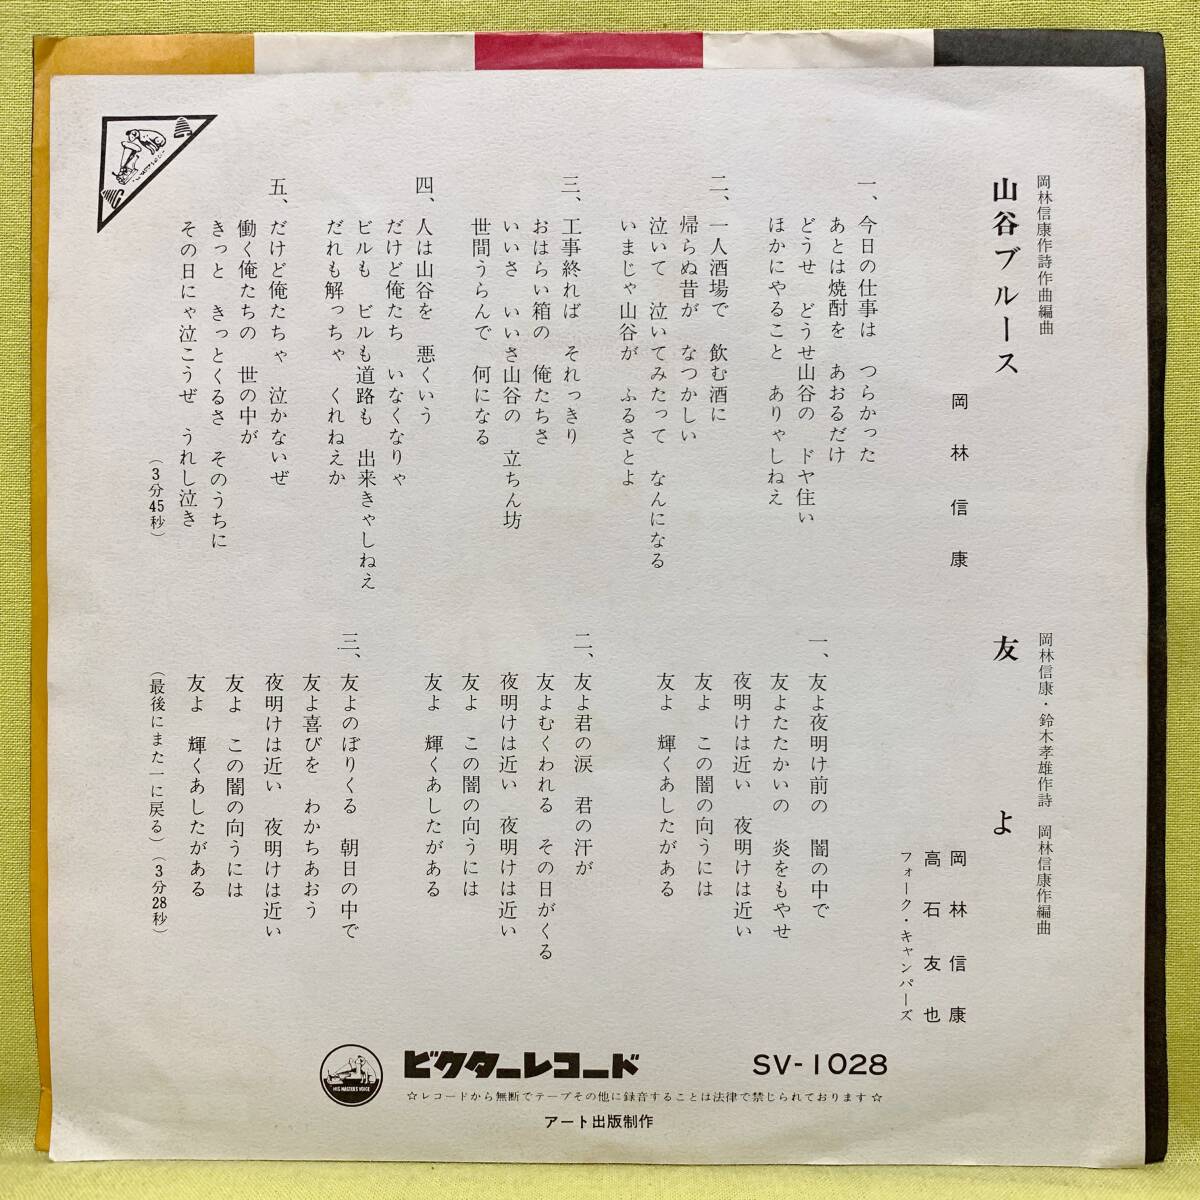 岡林信康作詩作曲編曲
山谷ブルース
岡林信康
一、今日の仕事は　つらかった
あとは焼酎を　あおるだけ
どうせ　どうせ山谷の　ドヤ住い
ほかにやること　ありゃしねえ
二、一人酒場で　飲む酒に
帰らぬ昔が　なつかしい
泣いて　泣いてみたって　なんになる
いまじゃ山谷が　ふるさとよ
三、工事終れば　それっきり
おはらい箱の　俺たちさ
いいさ　いいさ山谷の　立ちん坊
世間うらんで　何になる
四、人は山谷を　悪くいう
だけど俺たち　いなくなりゃ
ビルも　ビルも道路も　出来きゃしねえ
だれも解っちゃ　くれねえか
五、だけど俺たちゃ　泣かないぜ
働く俺たちの　世の中が
きっと　きっとくるさ　そのうちに
その日にゃ泣こうぜ　うれし泣き
（3分45秒）
岡林信康・鈴木孝雄作詩　岡林信康作編曲
友よ
岡林信康
高石友也
フォーク・キャンパーズ
一、友よ夜明け前の　闇の中で
友よたたかいの　炎をもやせ
夜明けは近い　夜明けは近い
友よ　この闇の向うには
友よ　輝くあしたがある
二、友よ君の涙　君の汗が
友よむくわれる　その日がくる
夜明けは近い　夜明けは近い
友よ　この闇の向うには
友よ　輝くあしたがある
三、友よのぼりくる　朝日の中で
友よ喜びを　わかちあおう
夜明けは近い　夜明けは近い
友よ　この闇の向うには
友よ　輝くあしたがある
（最後にまた一に戻る）（3分28秒）
HIS MASTER'S VOICE
ビクターレコード　SV-1028
☆レコードから無断でテープその他に録音することは法律で禁じられております☆
アート出版制作